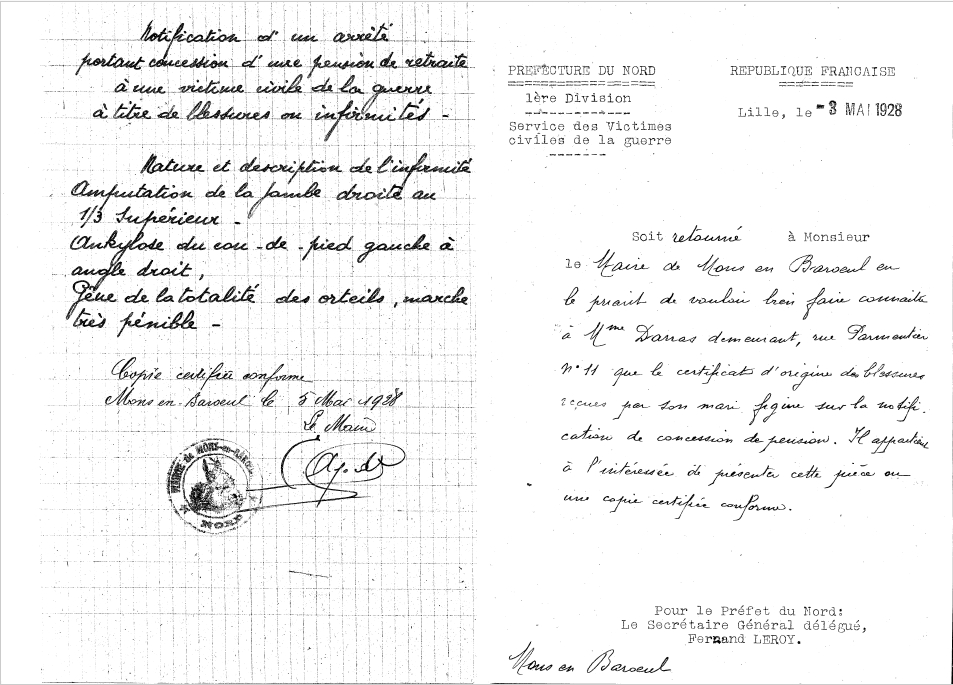 Notification d'un arrêté
portant concession d'une pension de retraite
à une victime civile de la guerre
à titre de blessures ou infirmités -
Nature et description de l'infirmité
Amputation de la jambe droite au
1/3 Supérieur -
Ankylose du cou-de-pied gauche à
angle droit,
Gêne de la totalité des orteils, marche
très pénible -
Copie certifiée conforme
Mons en-Baroeul le 5 Mai 1928
Le Maire
MAIRIE de MONS-en-BAROEUL
NORD
PREFECTURE DU NORD
1ère Division
Service des Victimes
civiles de la guerre
REPUBLIQUE FRANCAISE
Lille, le -3 MAI 1928
Soit retourné à Monsieur
le Maire de Mons en Baroeul en
le priant de vouloir bien faire connaître
à Mme Darras demeurant, rue Parmentier
n° 11 que le certificat d'origine des blessures
reçues par son mari figure sur la notifi-
cation de concession de pension. Il appartient
à l'intéressée de présenter cette pièce ou
une copie certifiée conforme.
Pour le Préfet du Nord:
Le Secrétaire Général délégué,
Fernand LEROY.
Mons en Baroeul